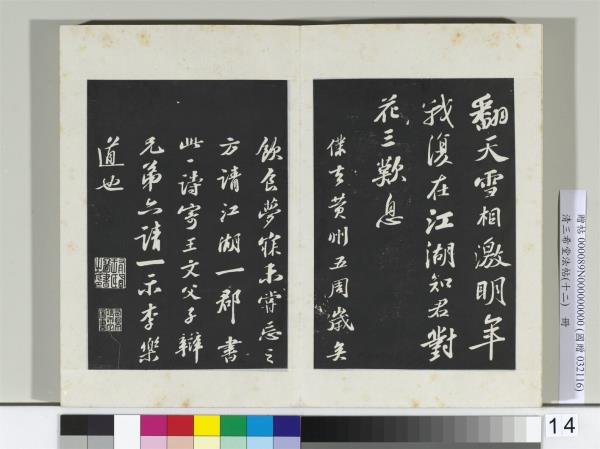 翻天雪相激明年
我復在江湖知君對
花三歎息
僕去黃州五周歲矣
飲食夢寐未嘗忘之
方請江湖一郡書
此一詩寄王文父子辯
兄弟亦請一示李樂
道也
贈帖 000089N000000000 (國贈 032116)
清三希堂法帖(十二) 冊
14